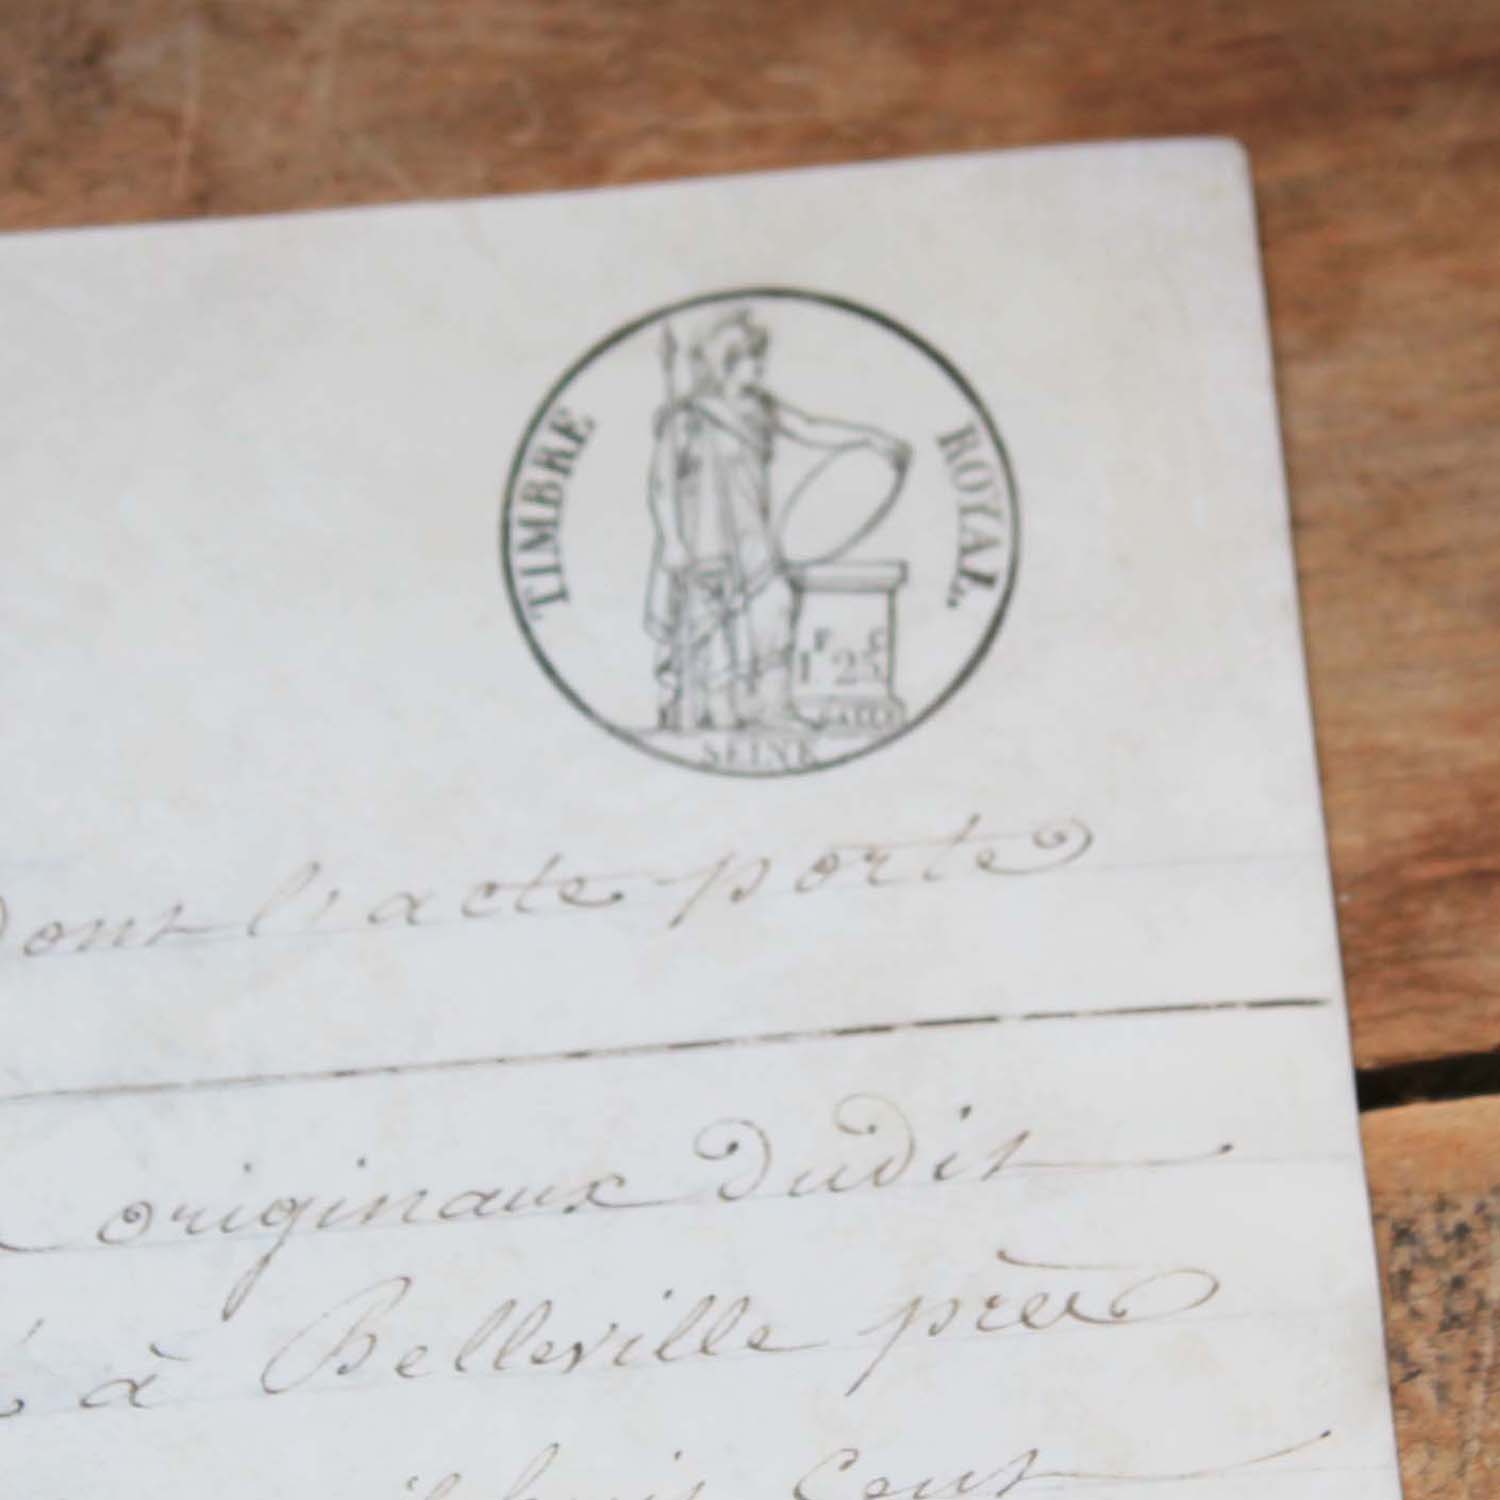 TIMBRE ROYAL.
1F 25C
SEINE
Dont l'acte porte
originaux dudit
à Belleville près
huit Cent